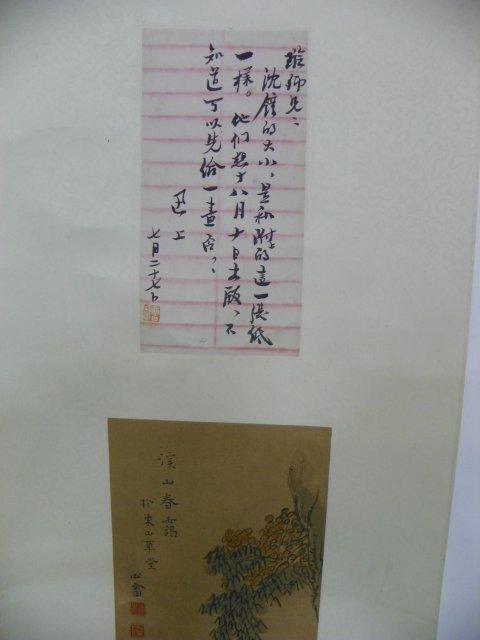 璇卿兄：
沈鐘的大小，是和附上的這一張紙
一樣。他们想于八月十日出版，不
知道可以先給一畫否？
迅上
七月二十七日
溪山春靄
於東山草堂
心畬